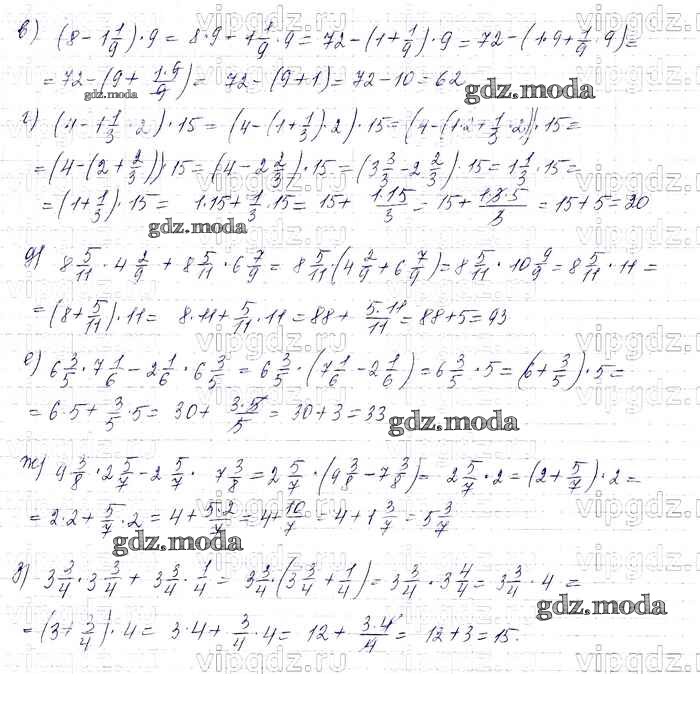 в) (8 - 1 1/9) · 9 = 8·9 - 1 1/9 · 9 = 72 - (1 + 1/9) · 9 = 72 - (1·9 + 1/9 · 9) =
= 72 - (9 + 1·9/9) = 72 - (9+1) = 72 - 10 = 62
gdz.moda
gdz.moda
г) (4 - 1 1/3 · 2) · 15 = (4 - (1 + 1/3) · 2) · 15 = (4 - (1·2 + 1/3 · 2)) · 15 =
= (4 - (2 + 2/3)) · 15 = (4 - 2 2/3) · 15 = (3 3/3 - 2 2/3) · 15 = 1 1/3 · 15 =
= (1 + 1/3) · 15 = 1·15 + 1/3 · 15 = 15 + 1·15/3 = 15 + 1·3·5/3 = 15 + 5 = 20
gdz.moda
д) 8 5/11 · 4 2/9 + 8 5/11 · 6 7/9 = 8 5/11 · (4 2/9 + 6 7/9) = 8 5/11 · 10 9/9 = 8 5/11 · 11 =
= (8 + 5/11) · 11 = 8·11 + 5/11 · 11 = 88 + 5·11/11 = 88 + 5 = 93
е) 6 3/5 · 7 1/6 - 2 1/6 · 6 3/5 = 6 3/5 · (7 1/6 - 2 1/6) = 6 3/5 · 5 = (6 + 3/5) · 5 =
= 6·5 + 3/5 · 5 = 30 + 3·5/5 = 30 + 3 = 33
gdz.moda
ж) 9 3/8 · 2 5/7 - 2 5/7 · 7 3/8 = 2 5/7 · (9 3/8 - 7 3/8) = 2 5/7 · 2 = (2 + 5/7) · 2 =
= 2·2 + 5/7 · 2 = 4 + 5·2/7 = 4 + 10/7 = 4 + 1 3/7 = 5 3/7
gdz.moda
з) 3 3/4 · 3 3/4 + 3 3/4 · 1/4 = 3 3/4 · (3 3/4 + 1/4) = 3 3/4 · 3 4/4 = 3 3/4 · 4 =
gdz.moda
= (3 + 3/4) · 4 = 3·4 + 3/4 · 4 = 12 + 3·4/4 = 12 + 3 = 15.
vipgdz.ru